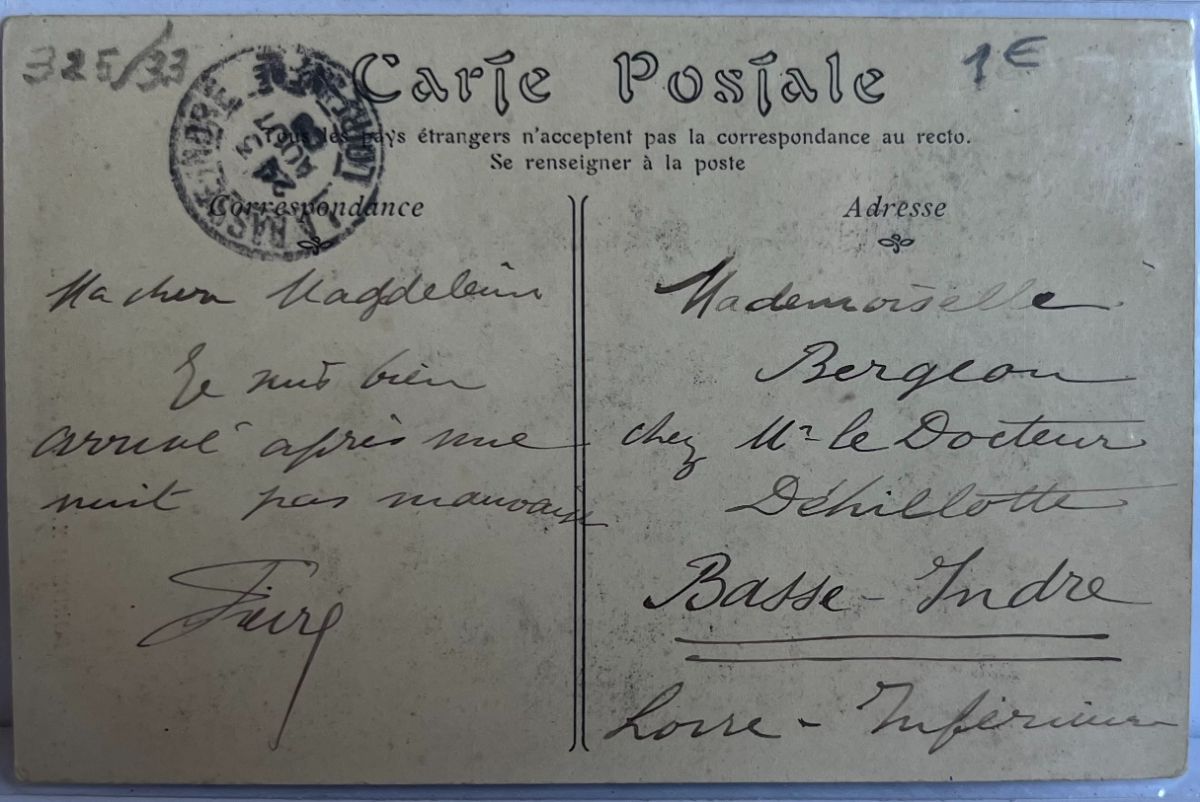 325/33
1€
Carte Postale
Tous les pays étrangers n'acceptent pas la correspondance au recto.
Se renseigner à la poste
LA BASSE-INDRE
LOIRE-INFRE
24
AOUT
Correspondance
Ma chere Magdeleine
Je suis bien
arrivé après une
nuit pas mauvaise
Adresse
Mademoiselle
Bergeon
chez Mr le Docteur
Déhillotte
Basse-Indre
Loire-Inférieure